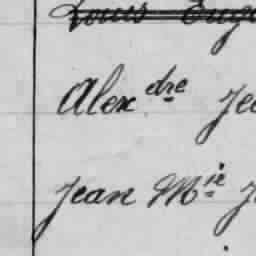 Louis Euge
Alexdre Jea
Jean Mie J